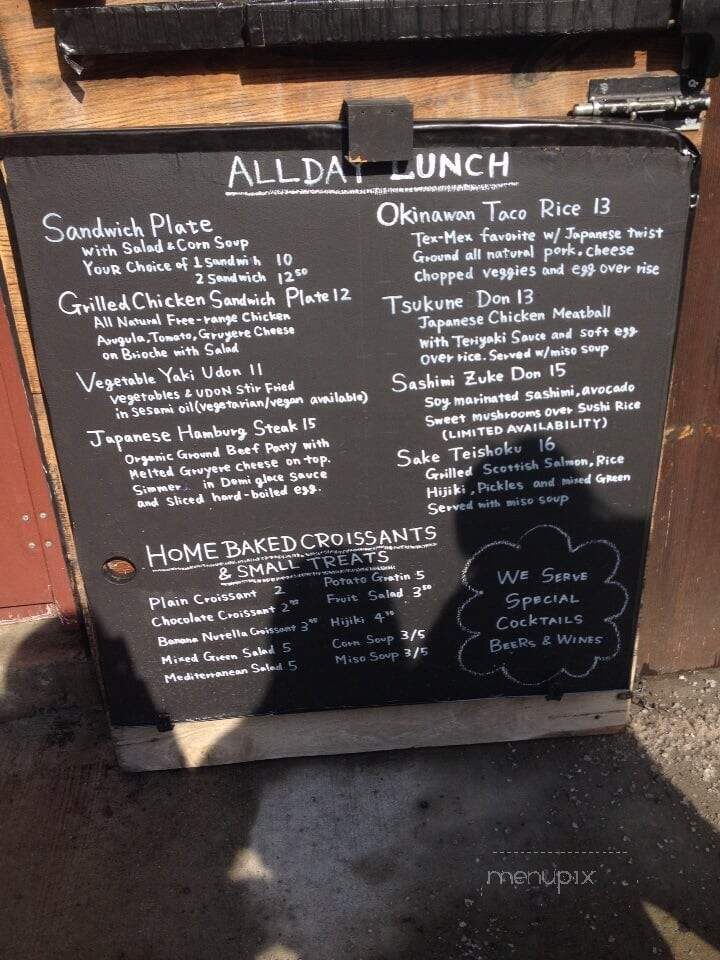 ALLDAY LUNCH
Sandwich Plate
with Salad & Corn Soup
YOUR Choice of 1 Sandwi h 10
2 Sandwich 12⁵⁰
Grilled Chicken Sandwich Plate 12
All Natural Free-range Chicken
Arugula, Tomato, Gruyere Cheese
on Brioche with Salad
Vegetable Yaki Udon 11
Vegetables & UDON Stir Fried
in Sesami oil (vegetarian/vegan available)
Japanese Hamburg Steak 15
Organic Ground Beef Patty with
Melted Gruyere Cheese on top.
Simmer in Demi glace Sauce
and Sliced hard-boiled egg.
Okinawan Taco Rice 13
Tex-Mex favorite w/ Japanese twist
Ground all natural pork, cheese
chopped veggies and egg over rise
Tsukune Don 13
Japanese Chicken Meatball
with Teriyaki Sauce and soft egg
over rice. Served w/miso soup
Sashimi Zuke Don 15
Soy marinated sashimi, avocado
Sweet mushrooms over Sushi Rice
(LIMITED AVAILABILITY)
Sake Teishoku 16
Grilled Scottish Salmon, Rice
Hijiki, Pickles and mixed Green
Served with miso soup
HOME BAKED CROISSANTS
& SMALL TREATS
Plain Croissant 2
Chocolate Croissant 2
Banana Nutella Croissant 3
Mixed Green Salad 5
Mediterranean Salad 5
Potato Gratin 5
Fruit Salad 3⁵⁰
Hijiki 4
Corn Soup 3/5
Miso Soup 3/5
WE SERVE
SPECIAL
COCKTAILS
BEERS & WINES
menupix